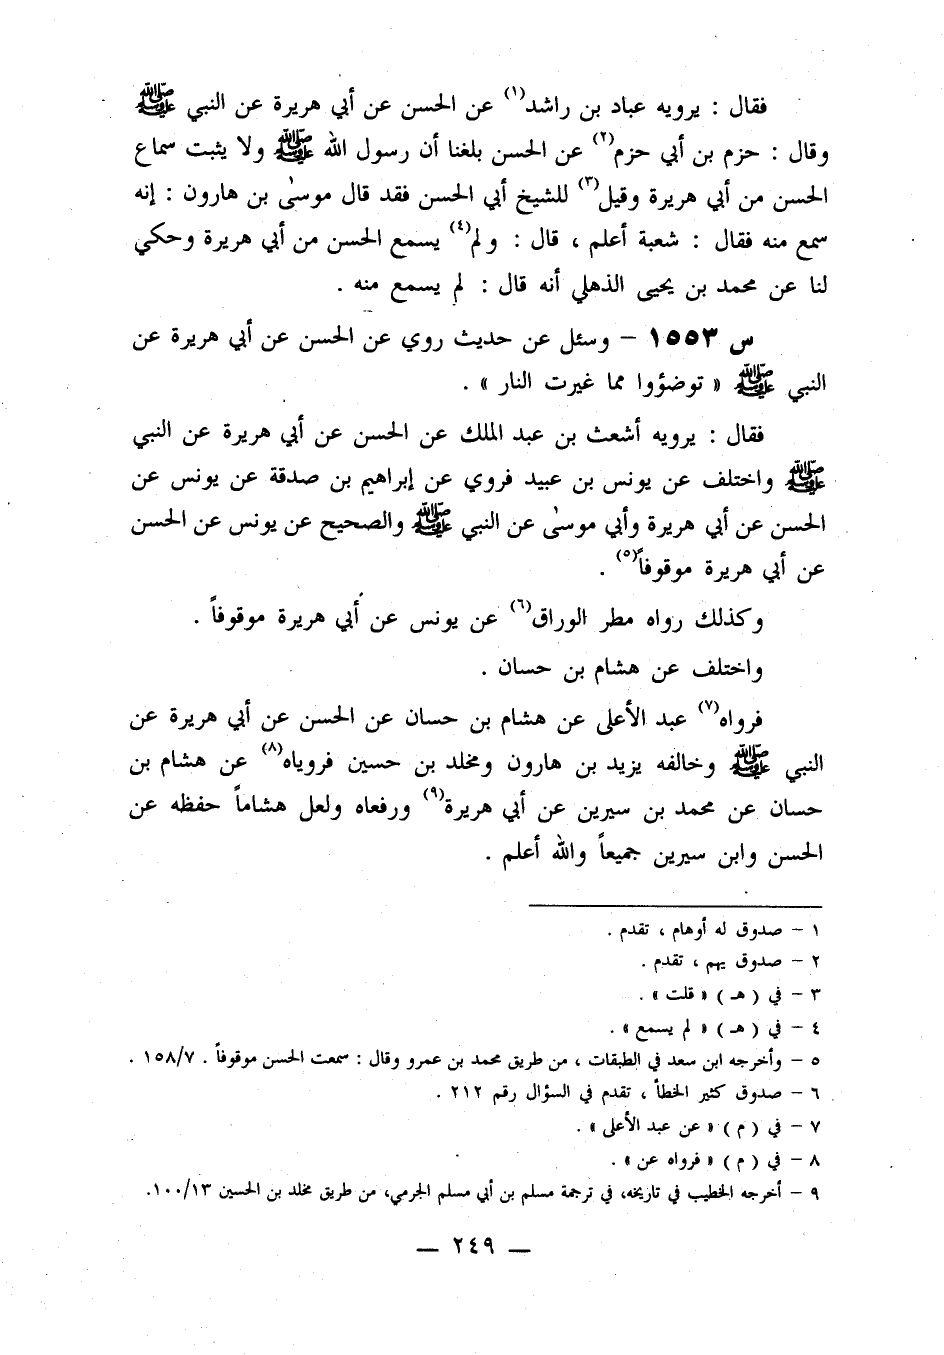 فقال : يرويه عباد بن راشد(١) عن الحسن عن أبي هريرة عن النبي ﷺ
وقال : حزم بن أبي حزم(٢) عن الحسن بلغنا أن رسول الله ﷺ ولا يثبت سماع
الحسن من أبي هريرة وقيل(٣) للشيخ أبي الحسن فقد قال موسىٰ بن هارون : إنه
سمع منه فقال : شعبة أعلم ، قال : ولم(٤) يسمع الحسن من أبي هريرة وحكي
لنا عن محمد بن يحيى الذهلي أنه قال : لم يسمع منه .
س ١٥٥٣ – وسئل عن حديث روي عن الحسن عن أبي هريرة عن
النبي ﷺ « توضؤوا مما غيرت النار » .
فقال : يرويه أشعث بن عبد الملك عن الحسن عن أبي هريرة عن النبي
ﷺ واختلف عن يونس بن عبيد فروي عن إبراهيم بن صدقة عن يونس عن
الحسن عن أبي هريرة وأبي موسىٰ عن النبي ﷺ والصحيح عن يونس عن الحسن
عن أبي هريرة موقوفاً(٥) .
وكذلك رواه مطر الوراق(٦) عن يونس عن أبي هريرة موقوفاً .
واختلف عن هشام بن حسان .
فرواه(٧) عبد الأعلى عن هشام بن حسان عن الحسن عن أبي هريرة عن
النبي ﷺ وخالفه يزيد بن هارون ومخلد بن حسين فروياه(٨) عن هشام بن
حسان عن محمد بن سيرين عن أبي هريرة(٩) ورفعاه ولعل هشاماً حفظه عن
الحسن وابن سيرين جميعاً والله أعلم .
١ – صدوق له أوهام ، تقدم .
٢ – صدوق يهم ، تقدم .
٣ – في ( هـ ) « قلت » .
٤ – في ( هـ ) « لم يسمع » .
٥ – وأخرجه ابن سعد في الطبقات ، من طريق محمد بن عمرو وقال : سمعت الحسن موقوفاً . ١٥٨/٧ .
٦ – صدوق كثير الخطأ ، تقدم في السؤال رقم ٢١٢ .
٧ – في ( م ) « عن عبد الأعلى » .
٨ – في ( م ) « فرواه عن » .
٩ – أخرجه الخطيب في تاريخه، في ترجمة مسلم بن أبي مسلم الجرمي، من طريق مخلد بن الحسين ١٠٠/١٣.
— ٢٤٩ —